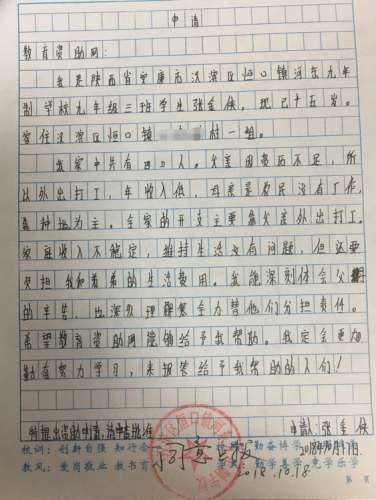 申请
教育资助网:
我是陕西省安康市汉滨区恒口镇河东九年
制学校九年级三班学生张金侠,现已十五岁。
家住汉滨区恒口镇 村一组。
我家中共有四口人。父亲因学历不足,所
以外出打工,年收入低,母亲是农民没有工作,
务种地为主。全家的开支主要靠父亲外出打工。
家庭收入不稳定,维持生活没有问题,但还要
负担我和弟弟的生活费用。我能深刻体会父母
的辛苦,也深知理解要全力替他们分担责任。
希望教育资助网能够给予我帮助。我定会更加
勤奋努力学习,来报答给予我帮助的人们!
特提出资助申请,请审查批准 申请人:张金侠
2018年10月17日
校训: 创新自强 知行合一 勤奋博学
教风: 爱岗敬业 教书育 勤学善学 竞学乐学
同意上报
2018.10.18
第 页